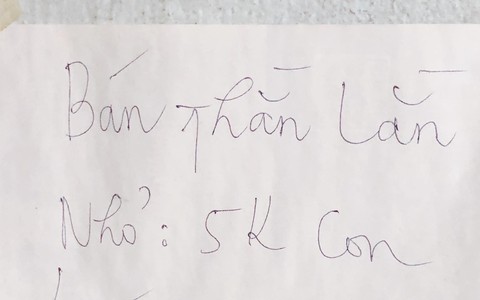 Bán Thằn Lằn
Nhỏ: 5K Con